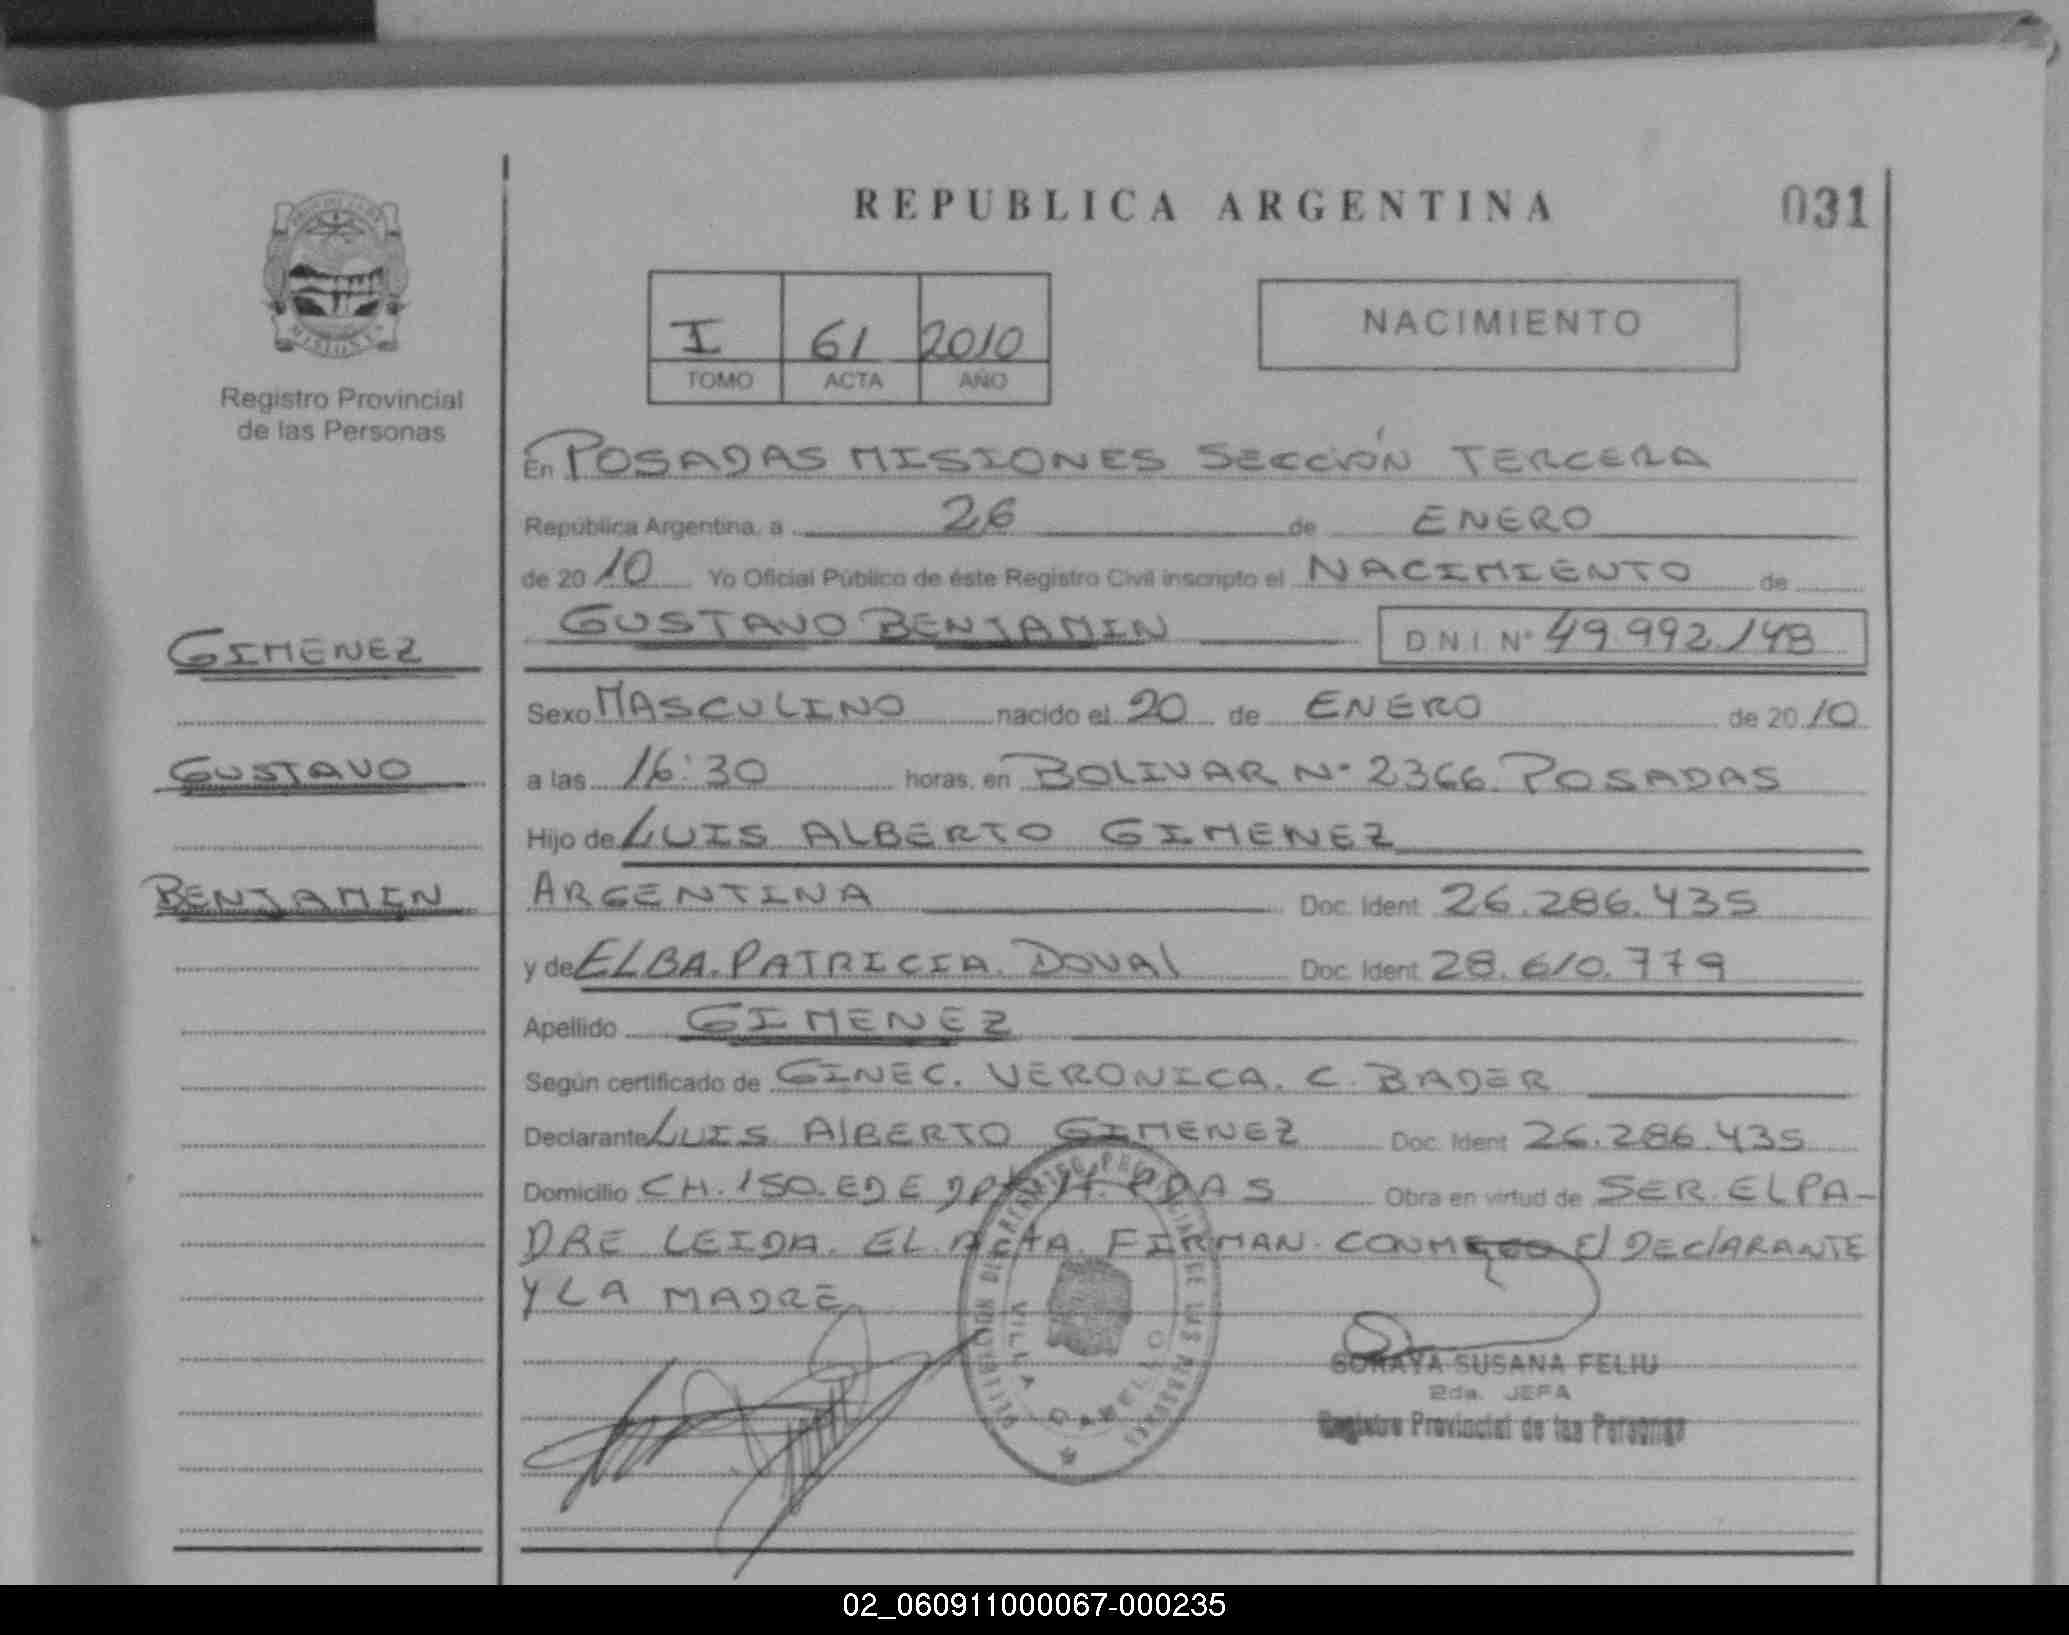 REPUBLICA ARGENTINA
031
I 61 2010
TOMO ACTA AÑO
NACIMIENTO
MISIONES
Registro Provincial
de las Personas
En POSADAS MISIONES SECCIÓN TERCERA
República Argentina, a 26 de ENERO
de 2010 Yo Oficial Público de éste Registro Civil inscripto el NACIMIENTO de
GUSTAVO BENJAMIN D.N.I. Nº 49.992.148
GIMENEZ
Sexo MASCULINO nacido el 20 de ENERO de 2010
GUSTAVO
a las 16:30 horas, en BOLIVAR Nº 2366. POSADAS
Hijo de LUIS ALBERTO GIMENEZ
BENJAMIN
ARGENTINA Doc. Ident. 26.286.435
y de ELBA. PATRICIA. DOVAl Doc. Ident. 28.610.779
Apellido GIMENEZ
Según certificado de GINEC. VERONICA. C. BADER
Declarante LUIS AlBERTO GIMENEZ Doc. Ident. 26.286.435
Domicilio CH. 150. EDE PDAS Obra en virtud de SER. EL PA-
DRE LEIDA. EL ACTA. FIRMAN. El DEClARANTE
Y LA MADRE
VILLA CABELLO
SORAYA SUSANA FELIU
2da. JEFA
Registro Provincial de las Personas
02_060911000067-000235